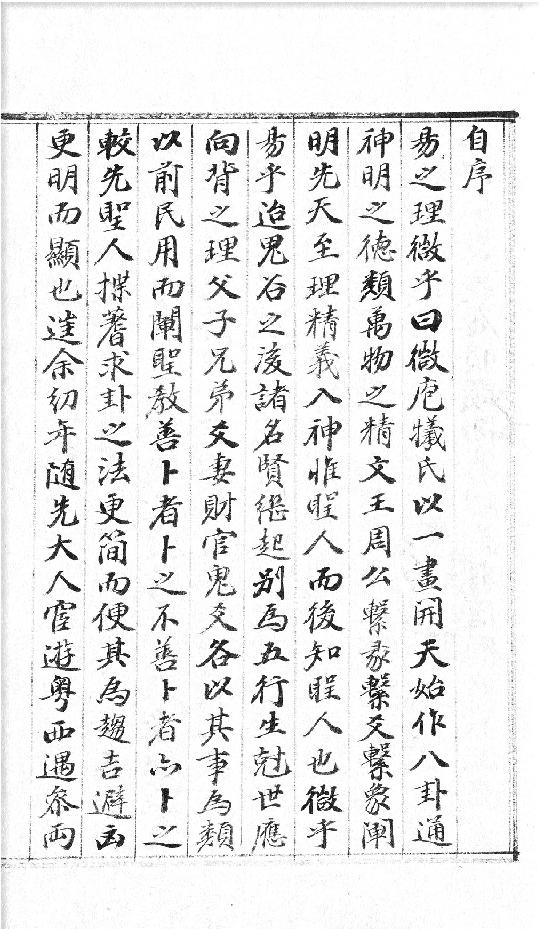 自序
易之理微乎曰微庖犧氏以一畫開天始作八卦通
神明之德類萬物之精文王周公繫彖繫爻繫象闡
明先天至理精義入神惟聖人而後知聖人也微乎
易乎迨鬼谷之後諸名賢継起别為五行生尅世應
向背之理父子兄弟爻妻財官鬼爻各以其事為類
以前民用而闡聖教善卜者卜之不善卜者亦卜之
較先聖人揲蓍求卦之法更简而便其為趨吉避凶
更明而顯也逹余幼年随先大人宦遊粤西遇叅両